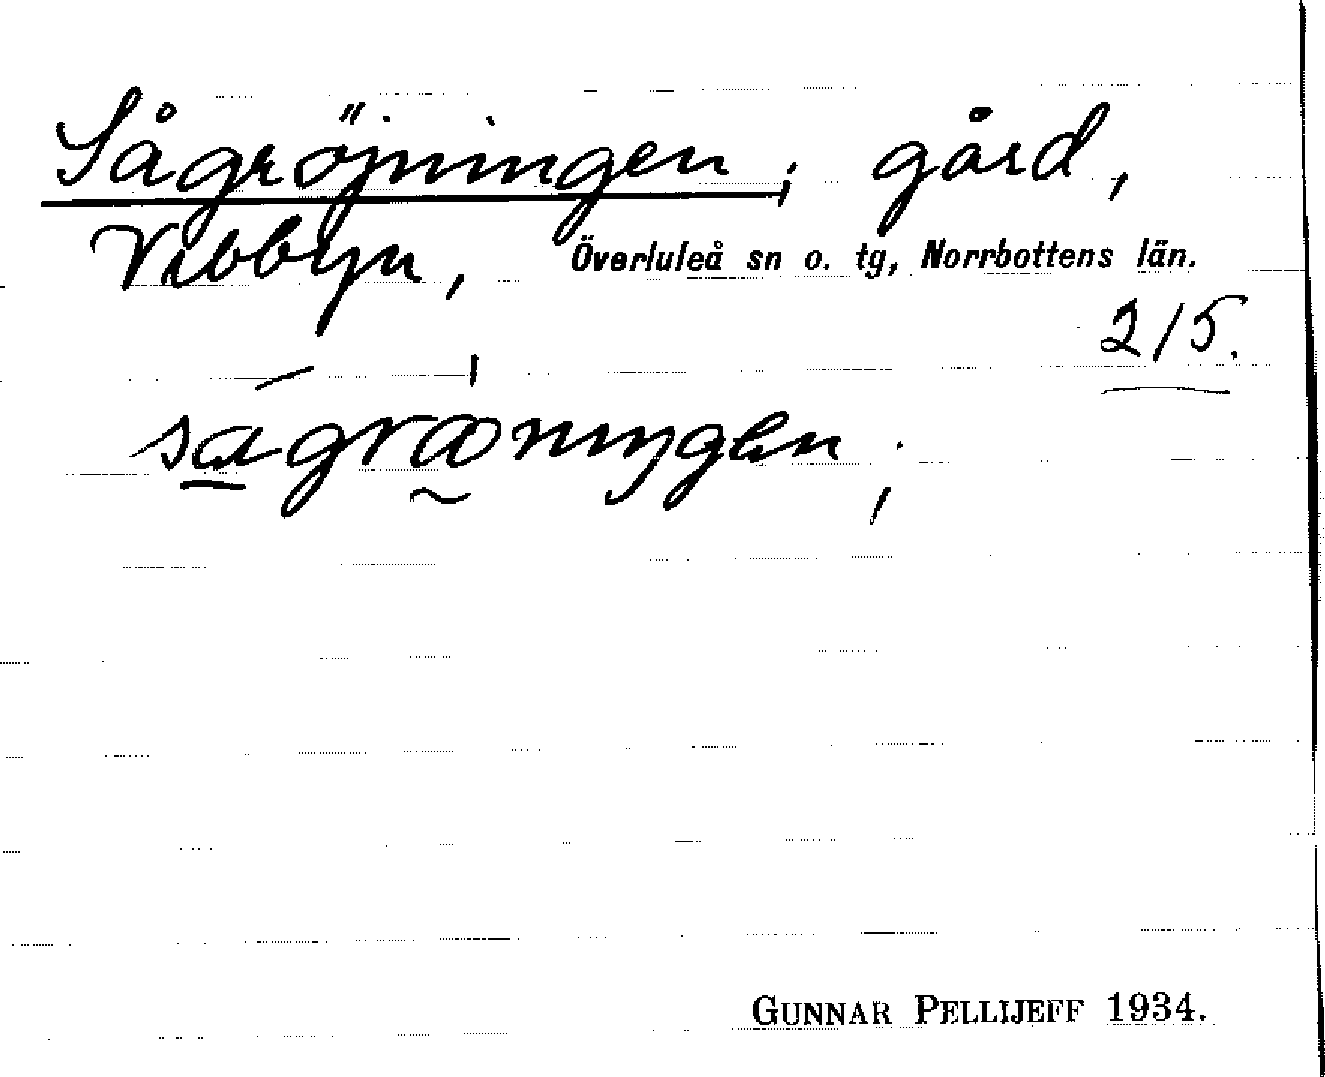 Sågröjningen; gård,
Vibbyn, Överluleå sn o. tg, Norrbottens län.
2/5.
GUNNAR PELLIJEFF 1934.